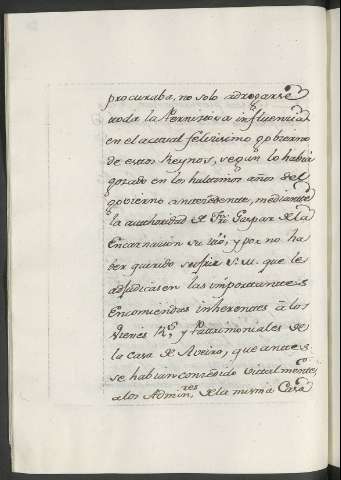 procuraba, no solo adrogarse
toda la Perniciosa influencia
en el actual felicisimo gobierno
de estos Reynos, segun lo habia
gozado en los hultimos años del
govierno antecedente, mediante
la authoridad de Fr. Gaspar de la
Encarnacion su tio, y por no ha
ber querido sufrir S. M. que le
adjudicasen las importantes
Encomiendas inherentes à los
Vienes R.s y Patrimoniales de
la Casa de Aveiro, que antes
se habian concedido vitalmente
a los Admin.res de la misma Casa